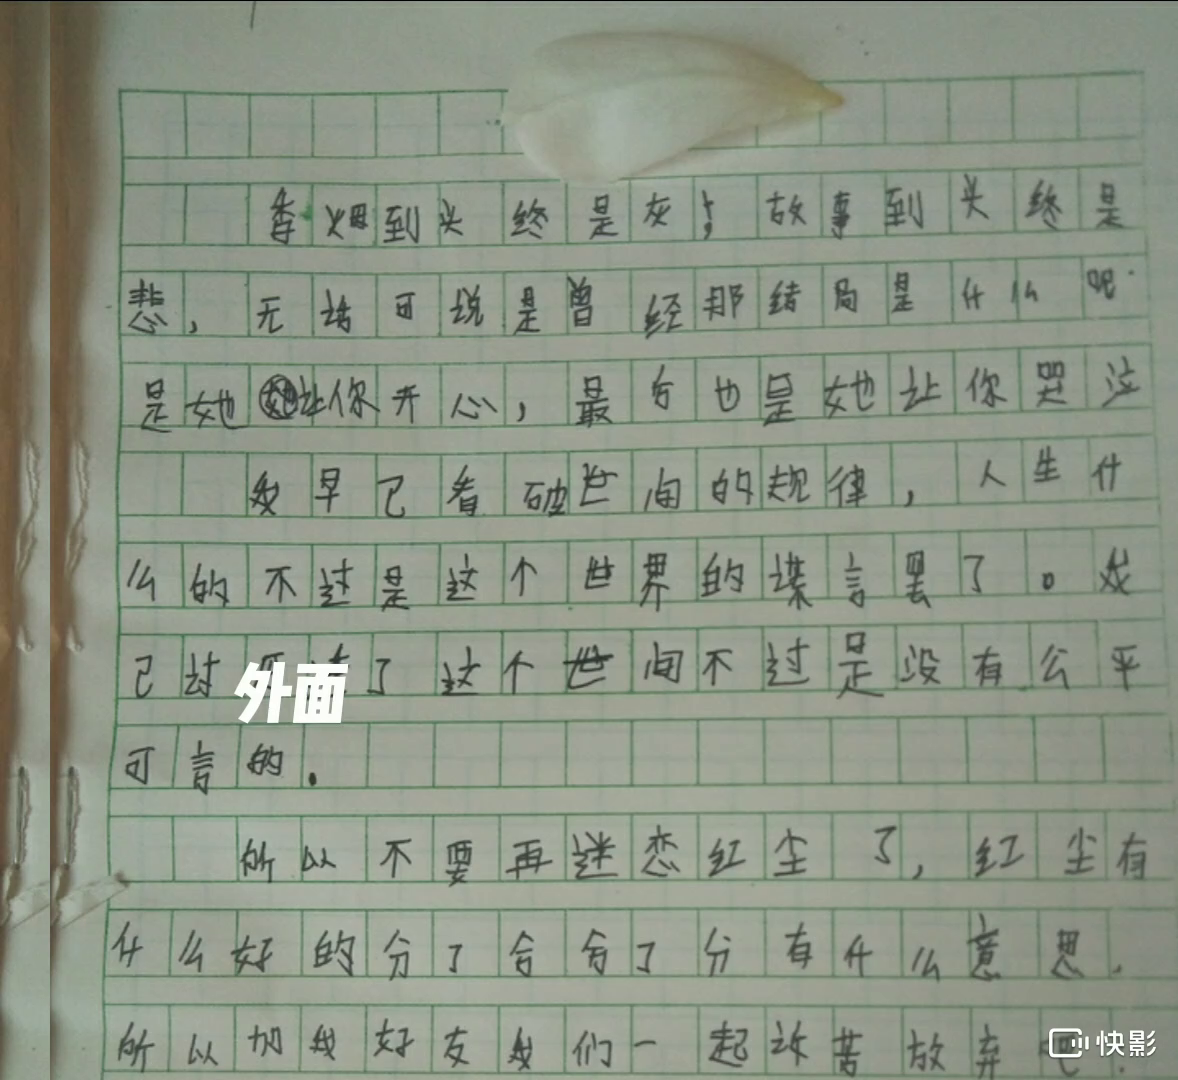 香烟到头终是灰！故事到头终是
悲，无话可说是曾经那结局是什么呢.
是她让你开心，最后也是她让你哭泣
我早已看破世间的规律，人生什
么的不过是这个世界的谎言罢了。我
已过了这个世间不过是没有公平
外面
可言的.
所以不要再迷恋红尘了，红尘有
什么好的分了合合了分有什么意思.
所以加我好友我们一起诉苦放弃吧.
快影